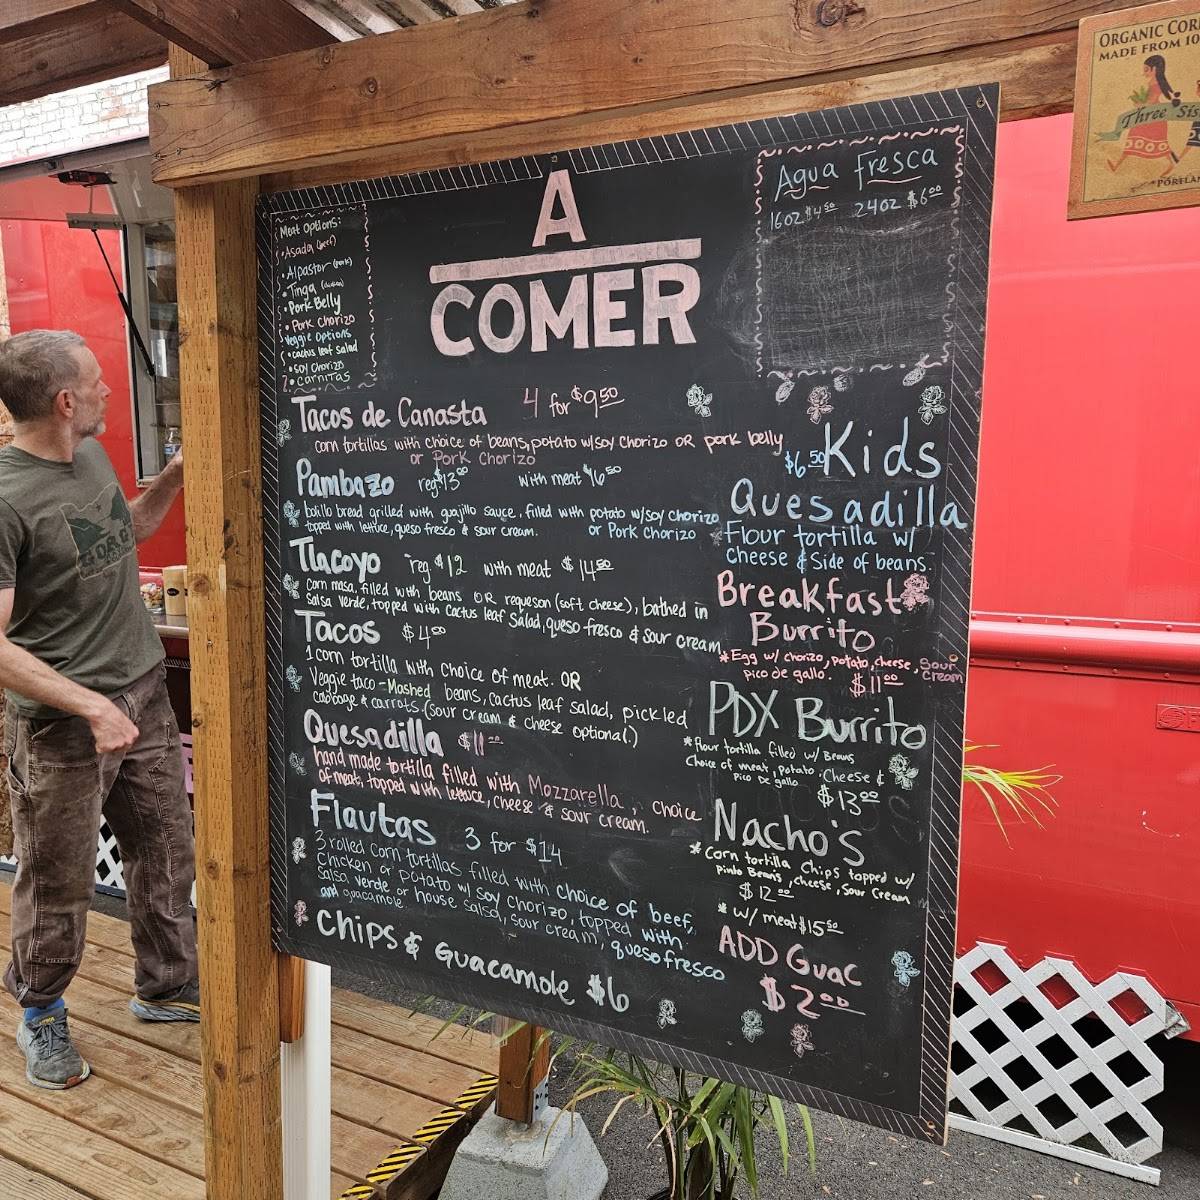 A
COMER
Meat options:
• Asada (beef)
• Alpastor (pork)
• Tinga (chicken)
• Pork Belly
• Pork Chorizo
Veggie Options
• cactus leaf salad
• Soy Chorizo
• CARNITAS
Agua Fresca
16oz $4.50 24oz $6.00
Tacos de Canasta 4 for $9.50
corn tortillas with choice of beans, potato w/soy chorizo OR pork belly
or Pork Chorizo
Pambazo reg $13.00 with meat $16.50
bolillo bread grilled with guajillo sauce, filled with potato w/soy chorizo
topped with lettuce, queso fresco & sour cream. or Pork Chorizo
Tlacoyo reg $12 with meat $14.50
Corn masa, filled with beans OR requeson (soft cheese), bathed in
salsa verde, topped with cactus leaf salad, queso fresco & sour cream
Tacos $4.00
1 corn tortilla with choice of meat. OR
Veggie taco - Mashed beans, cactus leaf salad, pickled
cabbage & carrots. (sour cream & cheese optional.)
Quesadilla $11.00
hand made tortilla filled with Mozzarella, choice
of meat, topped with lettuce, cheese & sour cream.
Flautas 3 for $14
3 rolled corn tortillas filled with choice of beef,
Chicken or potato w/ soy chorizo, topped with
salsa verde or house salsa, sour cream, queso fresco
and guacamole
Chips & Guacamole $6
$6.50 Kids
Quesadilla
Flour tortilla w/
cheese & Side of beans.
Breakfast
Burrito
* Egg w/ chorizo, potato, cheese, sour cream
pico de gallo. $11.00
PDX Burrito
* flour tortilla filled w/ Beans
Choice of meat, potato, cheese &
Pico De gallo
$13.00
Nacho's
* Corn tortilla Chips topped w/
pinto Beans, cheese, sour cream
$12.00
* w/ meat $15.50
ADD Guac
$2.00
ORGANIC COR
MADE FROM 10
Three Sis
PORTLAN
GORG